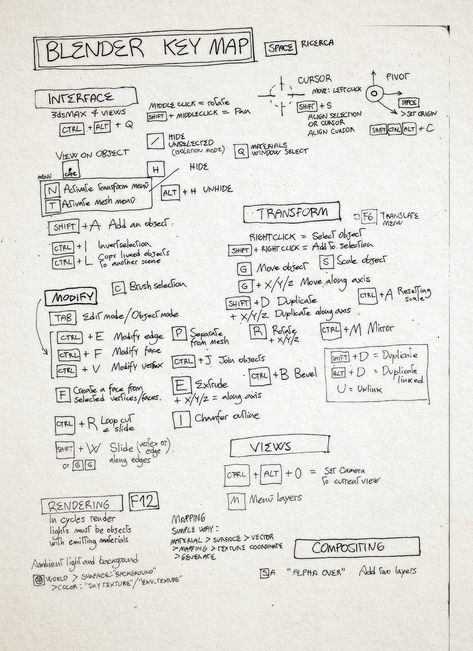 BLENDER KEY MAP
SPACE RICERCA
INTERFACE
3dsMAX 4 VIEWS
CTRL + ALT + Q
MIDDLE CLICK = rotate
SHIFT + MIDDLECLICK = Pan
/ HIDE UNSELECTED
(ISOLATION MODE)
CURSOR
MOVE: LEFT CLICK
SHIFT + S
ALIGN SELECTION
OR CURSOR
ALIGN CURSOR
PIVOT
SPACE
> SET ORIGIN
SHIFT CTRL ALT + C
Q MATERIALS
WINDOW SELECT
VIEW ON OBJECT
MENU
H HIDE
N Activate Transform menu
T Activate mesh menu
ALT + H UNHIDE
SHIFT + A Add an object
CTRL + I Invert selection
CTRL + L Copy linked objects
to another scene
C Brush selection
TRANSFORM
F6 TRANSLATE
MENU
RIGHT CLICK = Select object
SHIFT + RIGHT CLICK = Add to selection
G Move object
S Scale object
G + X/Y/Z Move along axis
SHIFT + D Duplicate
+ X/Y/Z Duplicate along axis
CTRL + A Resetting
scale
R Rotate
+ X/Y/Z
CTRL + M Mirror
SHIFT + D = Duplicate
ALT + D = Duplicate
linked
U = Unlink
MODIFY
TAB Edit mode / Object mode
CTRL + E Modify edge
CTRL + F Modify face
CTRL + V Modify vertex
P Separate
from mesh
CTRL + J Join objects
F Create a face from
selected vertices/faces.
E Extrude
+ X/Y/Z = along axis
CTRL + B Bevel
CTRL + R Loop cut
& slide
I Chamfer outline
SHIFT + W Slide (vertex or)
edge
or G G along edges
VIEWS
CTRL + ALT + 0 = Set Camera
to current view
M Menu layers
RENDERING F12
In cycles render
lights must be objects
with emitting materials
Ambient light and background
WORLD > SURFACE: "BACKGROUND"
> COLOR: "SKY TEXTURE"/"ENV.TEXTURE"
MAPPING
SIMPLE WAY:
MATERIAL > SURFACE > VECTOR
> MAPPING > TEXTURE COORDINATE
> GENERATE
COMPOSITING
"ALPHA OVER" Add two layers